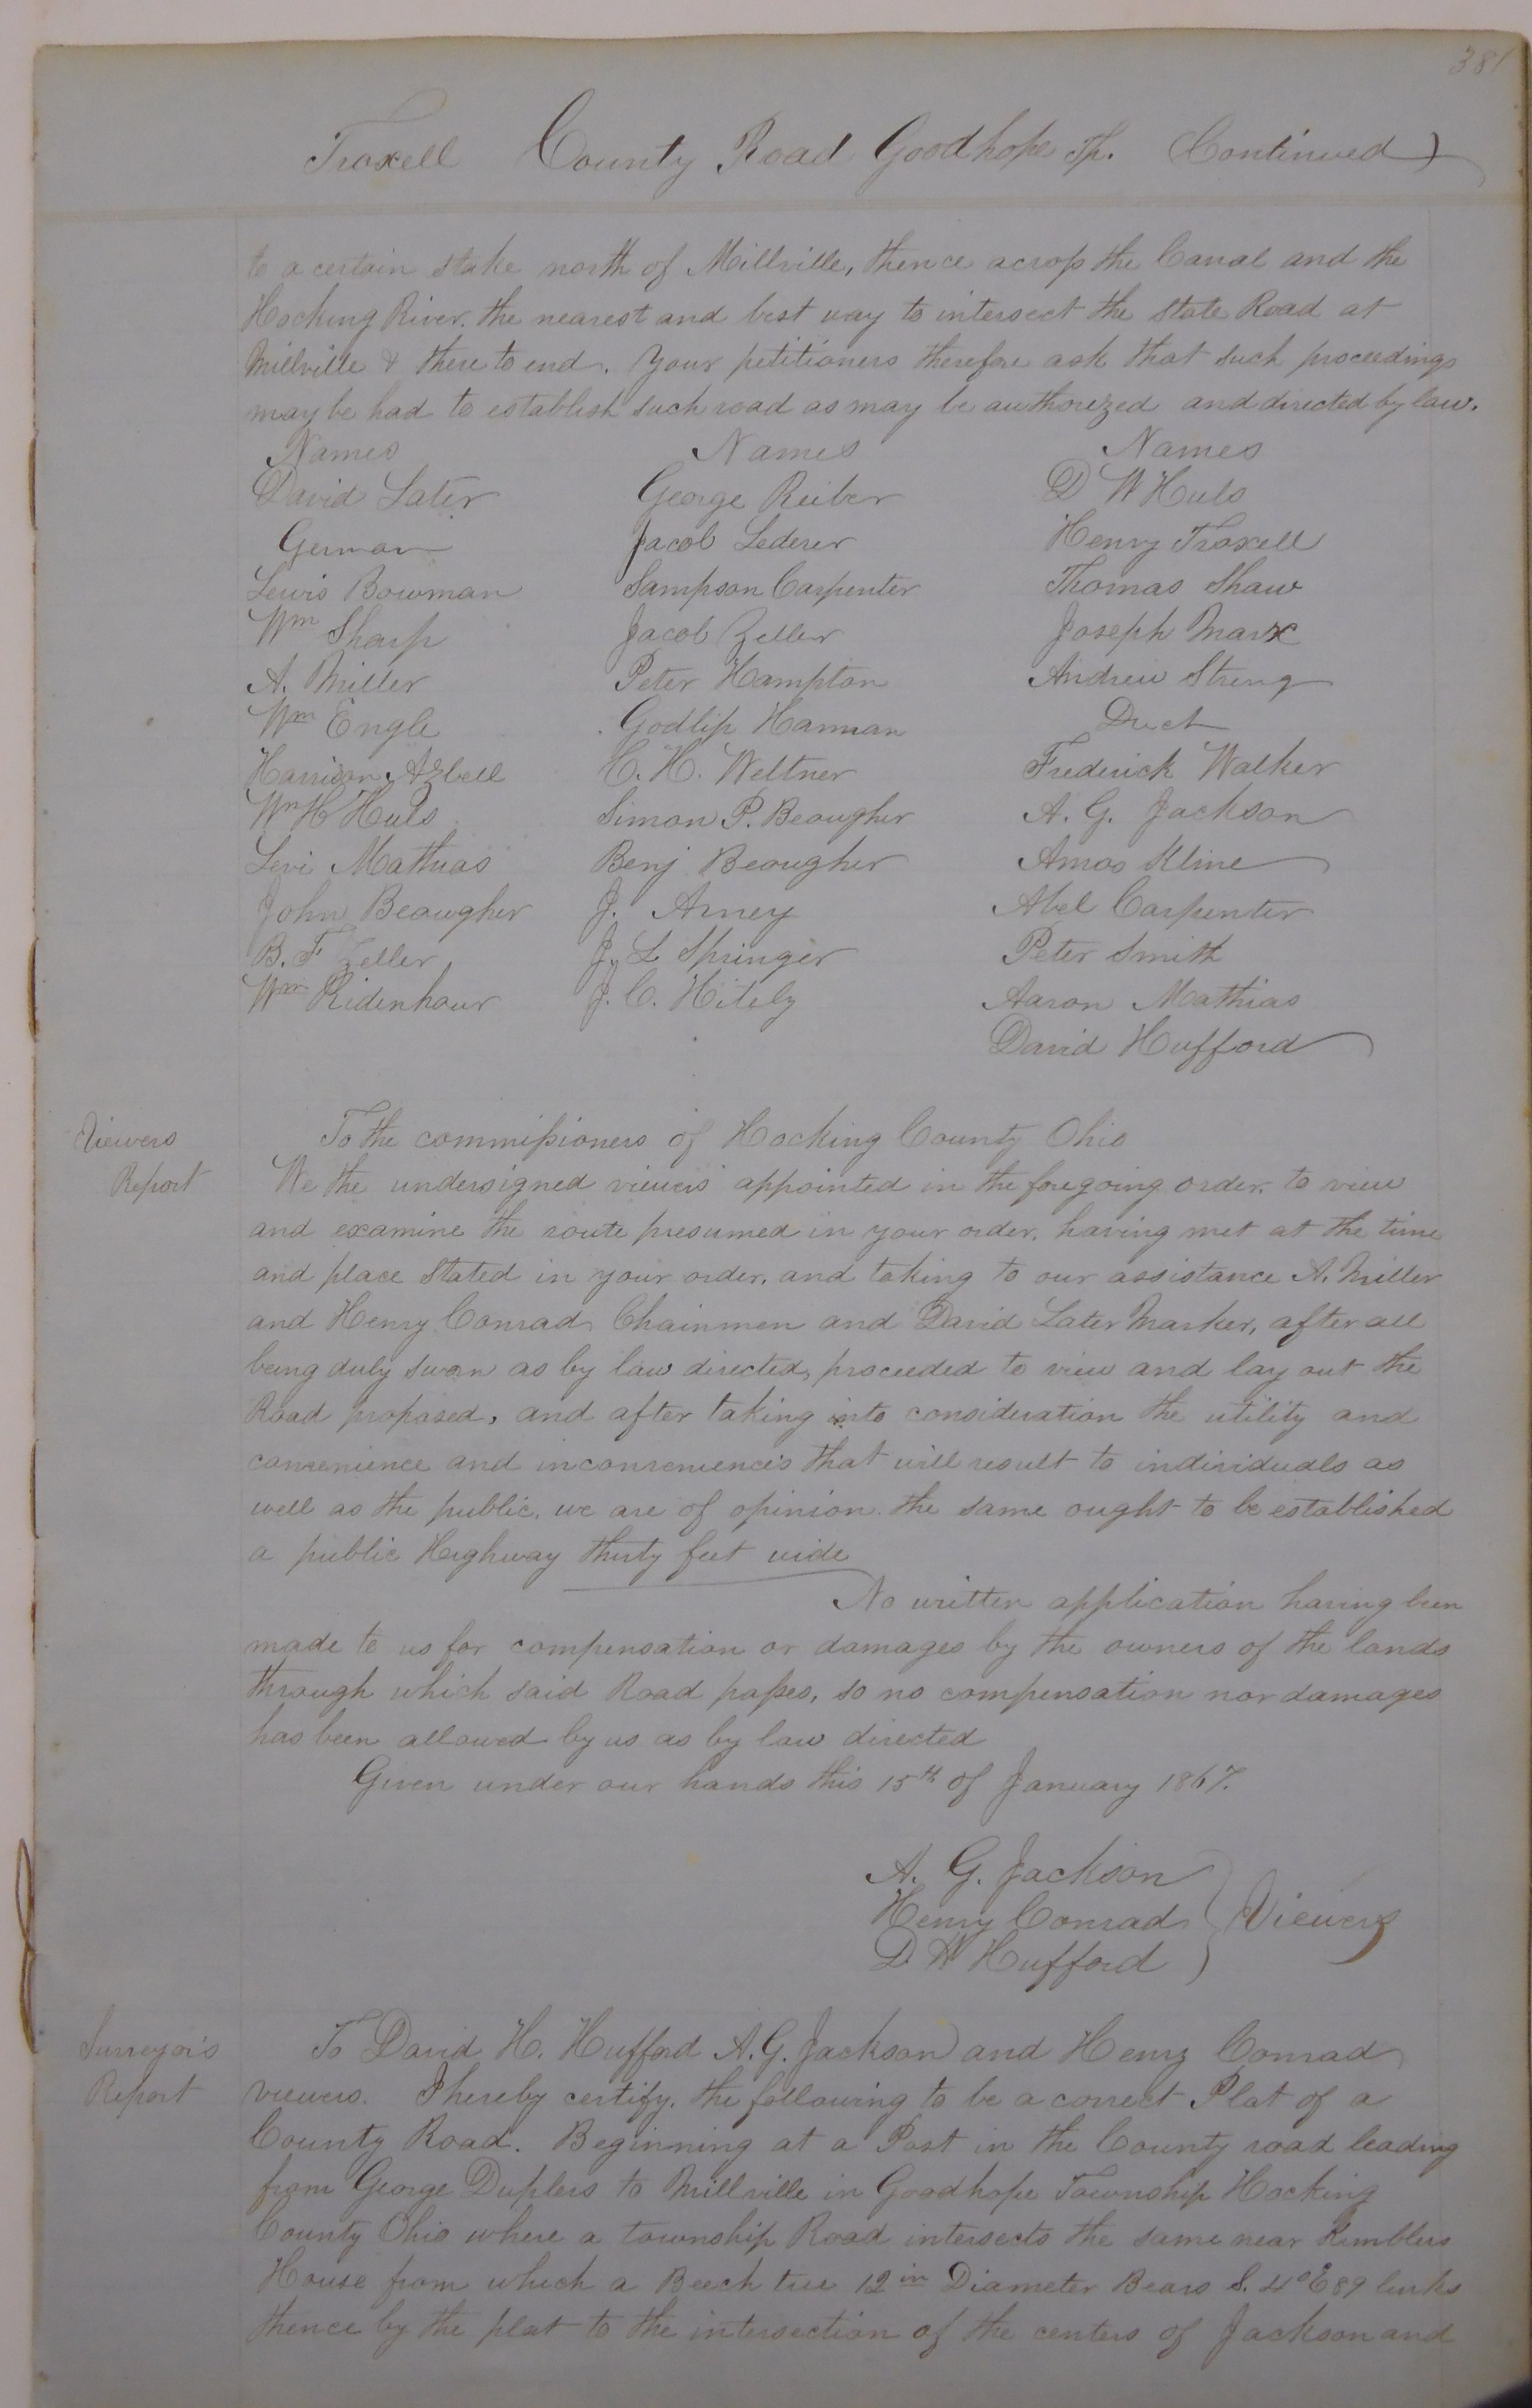 381
Troxell County Road Goodhope Tp. (Continued)
to a certain stake north of Millville, thence across the Canal and the
Hocking River. the nearest and best way to intersect the State Road at
Millville & there to end. Your petitioners therefore ask that such proceedings
may be had to establish such road as may be authorized and directed by law.
Names Names Names
David Later George Reiber D W Huls
German Jacob Lederer Henry Troxell
Lewis Bowman Sampson Carpenter Thomas Shaw
Wm Sharp Jacob Zeller Joseph Marx
A. Miller Peter Hampton Andrew Streng
Wm Engle Godlip Hannan Duct
Harrison Azbell C. H. Weltner Frederick Walker
Wm H Huls Simon P. Beougher A. G. Jackson
Levi Mathias Benj Beougher Amos Kline
John Beougher J. Arney Abel Carpenter
B. F Zeller J. L Springer Peter Smith
Wm Ridenhour J. C. Hitely Aaron Mathias
David Hufford
Viewers
Report
To the commissioners of Hocking County Ohio
We the undersigned viewers appointed in the foregoing order. to view
and examine the route presumed in your order, having met at the time
and place Stated in your order, and taking to our assistance A. Miller
and Henry Conrad Chainmen and David Later Marker, after all
being duly sworn as by law directed, proceeded to view and lay out the
Road proposed, and after taking into consideration the utility and
convenience and inconveniences that will result to individuals as
well as the public, we are of opinion the same ought to be established
a public Highway thirty feet wide
No written application having been
made to us for compensation or damages by the owners of the lands
through which said Road passes, so no compensation nor damages
has been allowed by us as by law directed
Given under our hands this 15th of January 1867.
A. G. Jackson
Henry Conrad } Viewers
D. W Hufford
Surveyor's
Report
To David H. Hufford A. G. Jackson and Henry Conrad
viewers. I hereby certify. the following to be a correct Plat of a
County Road. Beginning at a Post in the County road leading
from George Duplers to Millville in Goodhope Township Hocking
County Ohio where a township Road intersects the same near Kimblers
House from which a Beech tree 12 in Diameter Bears S. 4° E 89 links
thence by the plat to the intersection of the centers of Jackson and